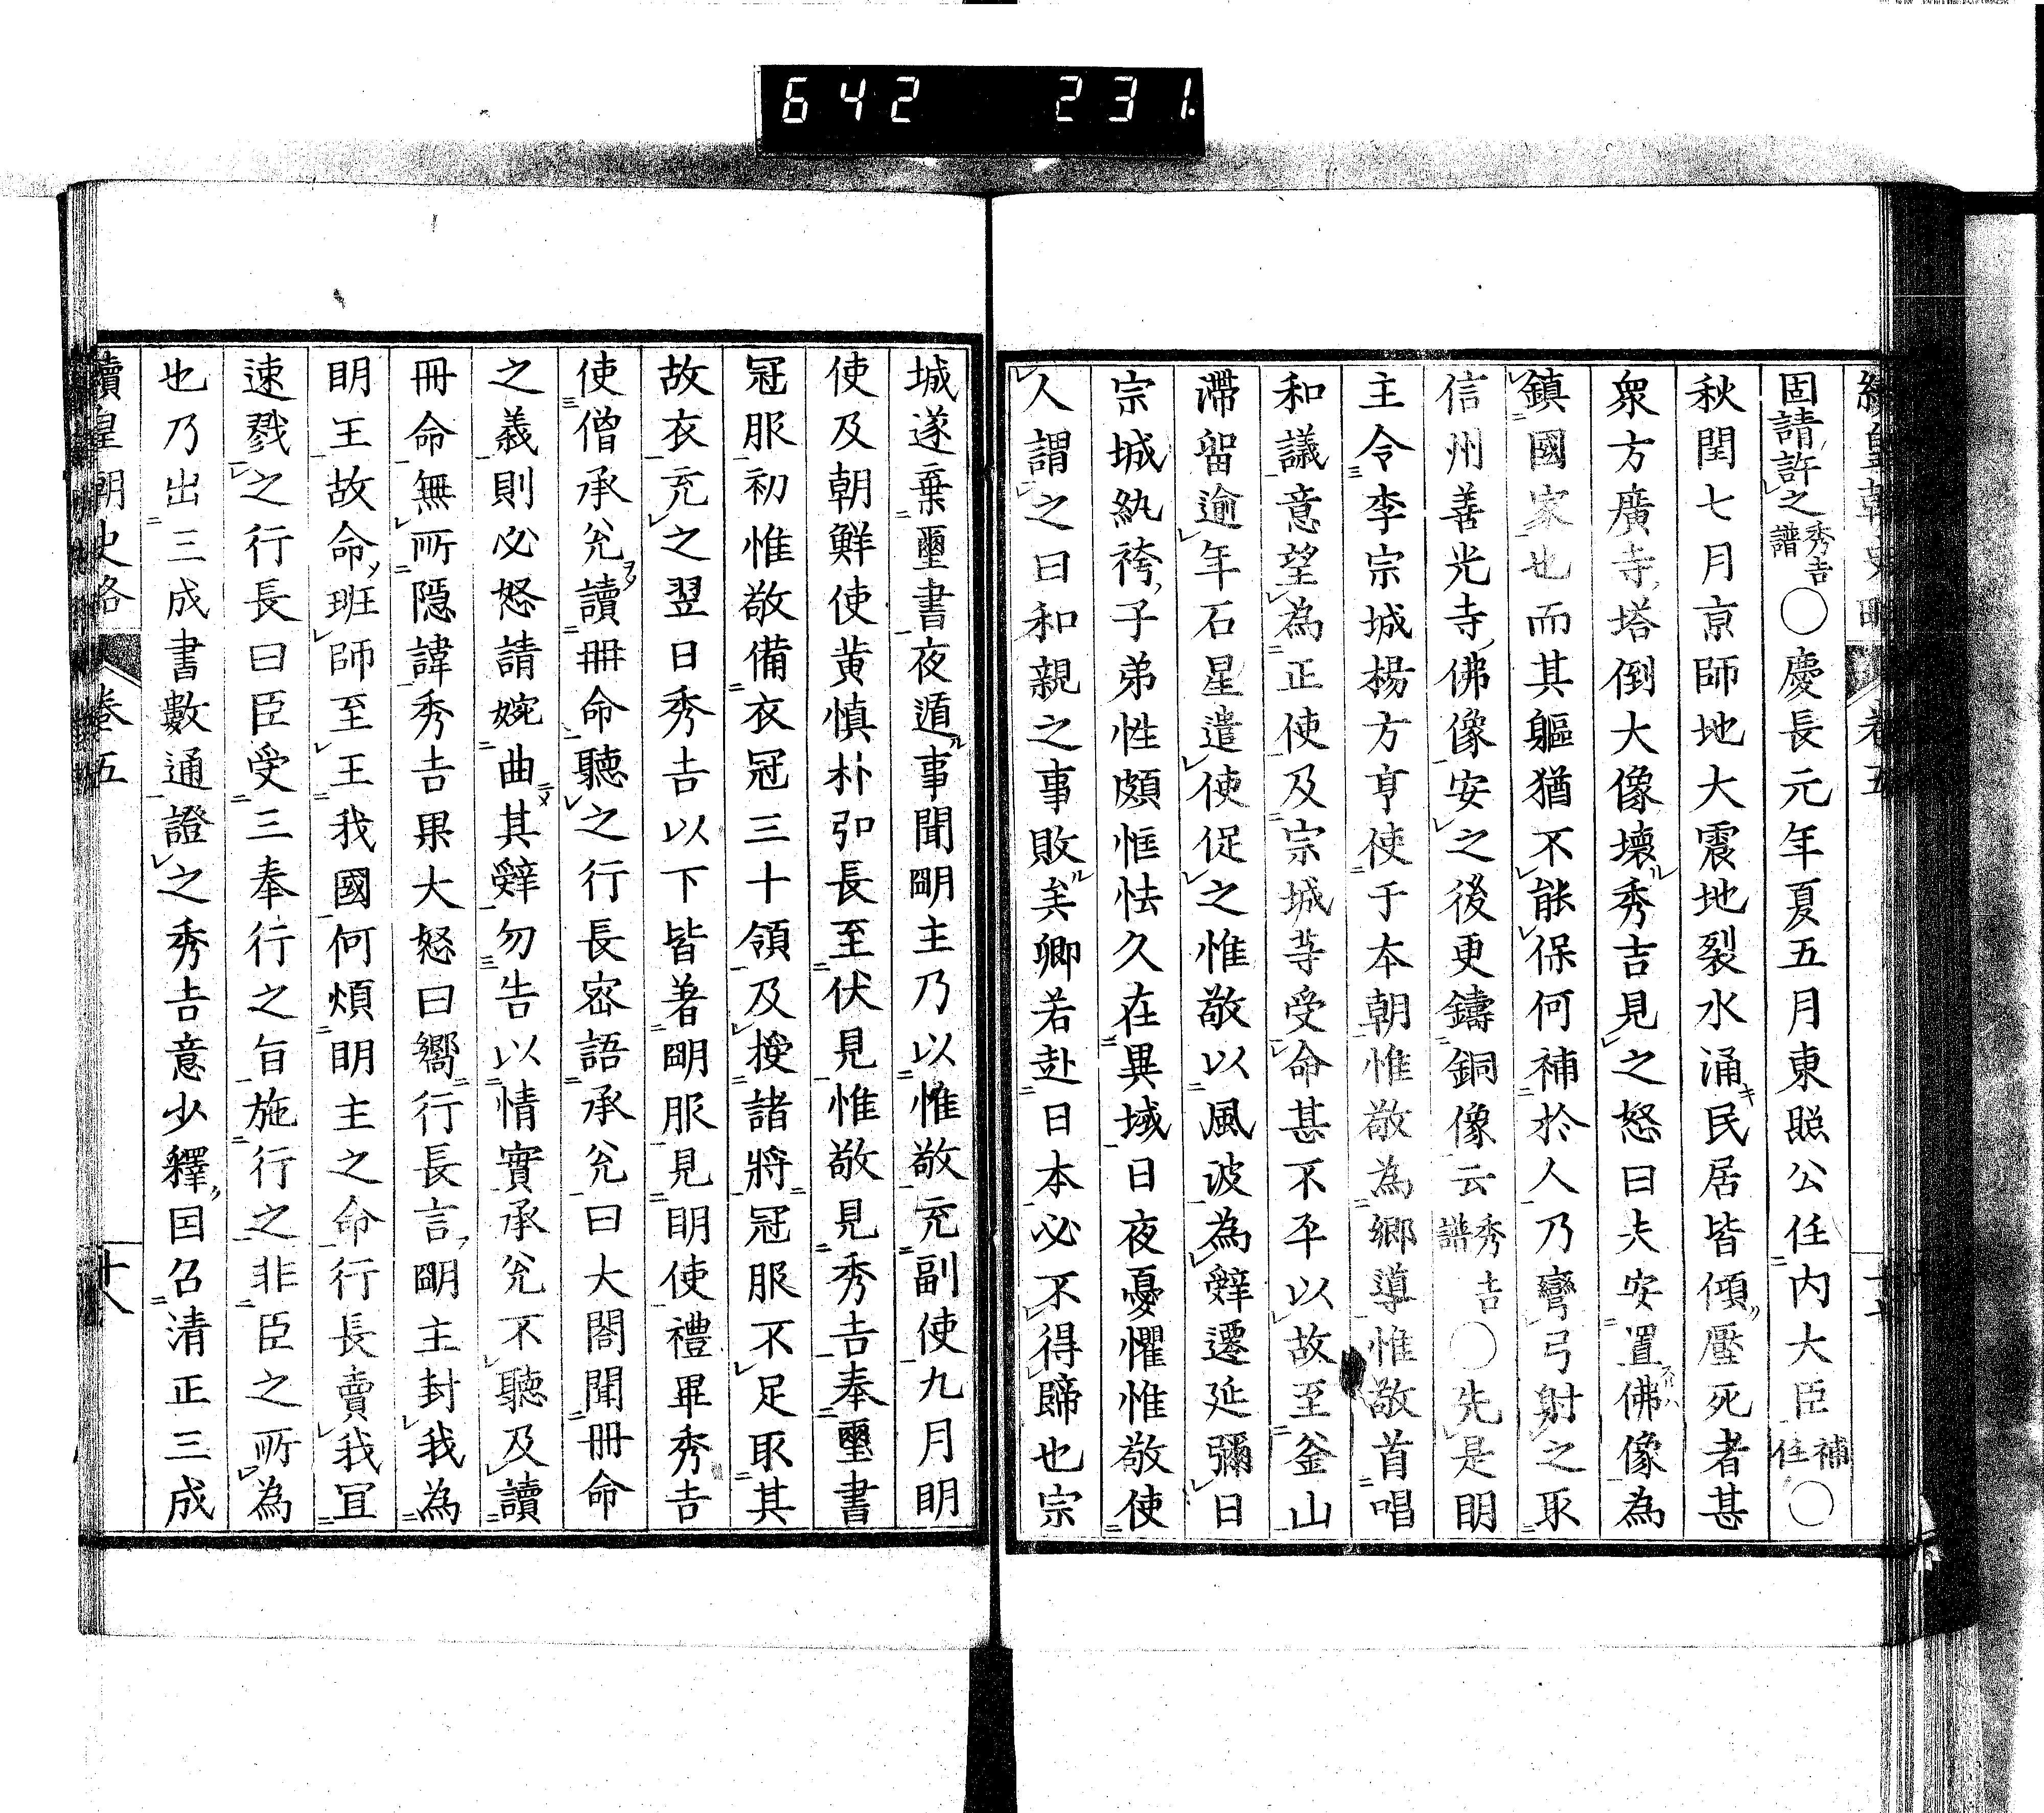 642 231
續皇朝史略 卷五
固請許之秀吉譜○慶長元年夏五月東照公任内大臣補任○
秋閏七月京師地大震地裂水涌民居皆傾壓死者甚
衆方廣寺塔倒大像壞秀吉見之怒曰夫安置佛像為
鎮國家也而其軀猶不能保何補於人乃彎弓射之取
信州善光寺佛像安之後更鑄銅像云秀吉譜○先是明
主令李宗城楊方亨使于本朝惟敬為鄉導惟敬首唱
和議意望為正使及宗城等受命甚不平以故至釜山
滯留逾年石星遣使促之惟敬以風波為辭遷延彌日
宗城紈袴子弟性頗恇怯久在異域日夜憂懼惟敬使
人謂之曰和親之事敗矣卿若赴日本必不得歸也宗
城遂棄璽書夜遁事聞明主乃以惟敬充副使九月明
使及朝鮮使黄慎朴弘長至伏見惟敬見秀吉奉璽書
冠服初惟敬備衣冠三十領及授諸將冠服不足取其
故衣充之翌日秀吉以下皆著明服見明使禮畢秀吉
使僧承兊讀冊命聽之行長密語承兊曰大閤聞冊命
之義則必怒請婉曲其辭勿告以情實承兊不聽及讀
冊命無所隱諱秀吉果大怒曰嚮行長言明主封我為
明王故命班師至王我國何煩明主之命行長賣我宜
速戮之行長曰臣受三奉行之旨施行之非臣之所為
也乃出三成書數通證之秀吉意少釋因召清正三成
續皇朝史略 卷五 十八